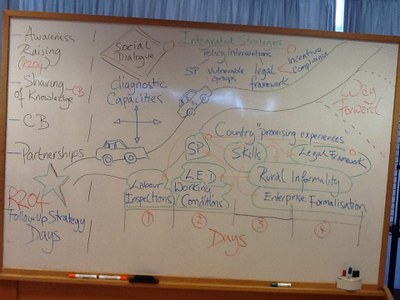 Awareness
Raising
(R204)
Sharing
of Knowledge
CB
CB
Partnerships
R204
Followup Strategy
Days
Social
Dialogue
Diagnostic
Capacities
Integrated Strategies
Policy Interventions
SP
Vulnerable
groups
legal
framework
Incentive
Compliance
Way
Forward
Country "promising experiences
SP
Skills
Legal Framework
Labour
Inspections
LED
Working
Conditions
Rural Informality
Enterprise Formalisation
1
2
3
4
Days